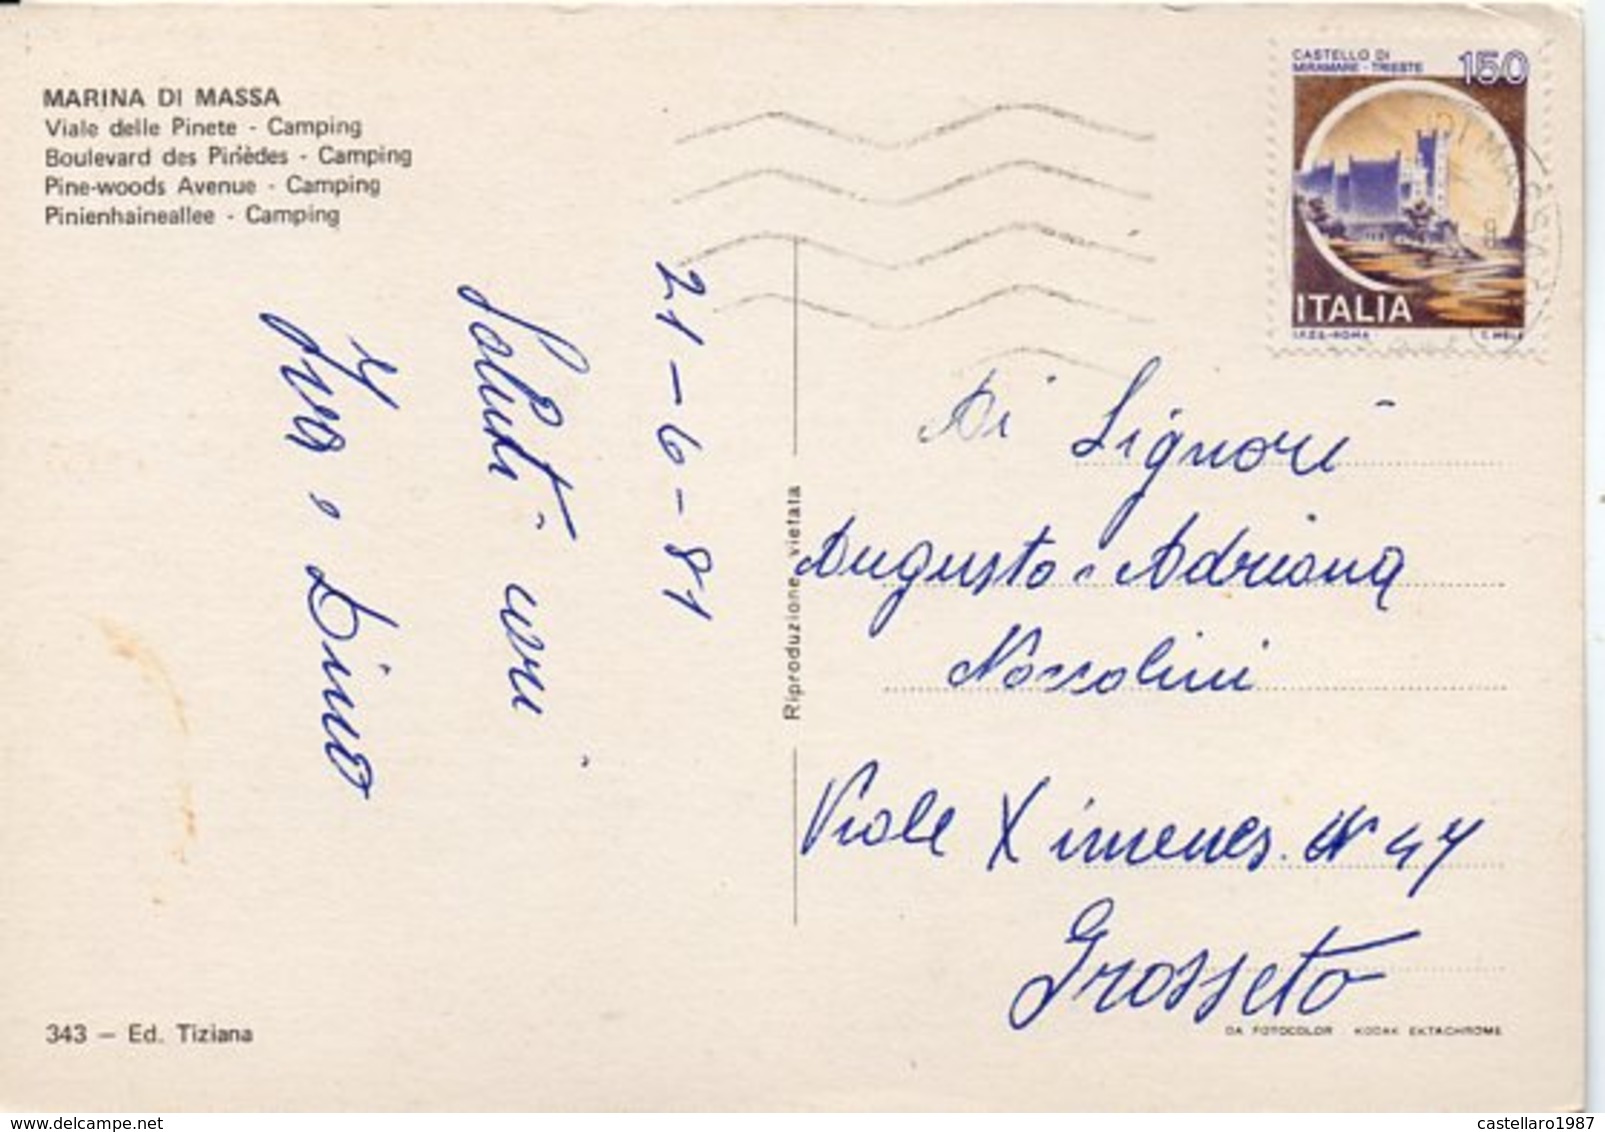 MARINA DI MASSA
Viale delle Pinete - Camping
Boulevard des Pinèdes - Camping
Pine-woods Avenue - Camping
Pinienhaineallee - Camping
CASTELLO DI
MIRAMARE - TRIESTE
150
ITALIA
I.P.Z.S. - ROMA
21-6-81
Saluti cari
Iva e Dino
Riproduzione vietata
Ai Signori
Augusto e Adriana
Viale Ximenes. N 47
Grosseto
343 - Ed. Tiziana
DA FOTOCOLOR KODAK EKTACHROME
castellaro1987